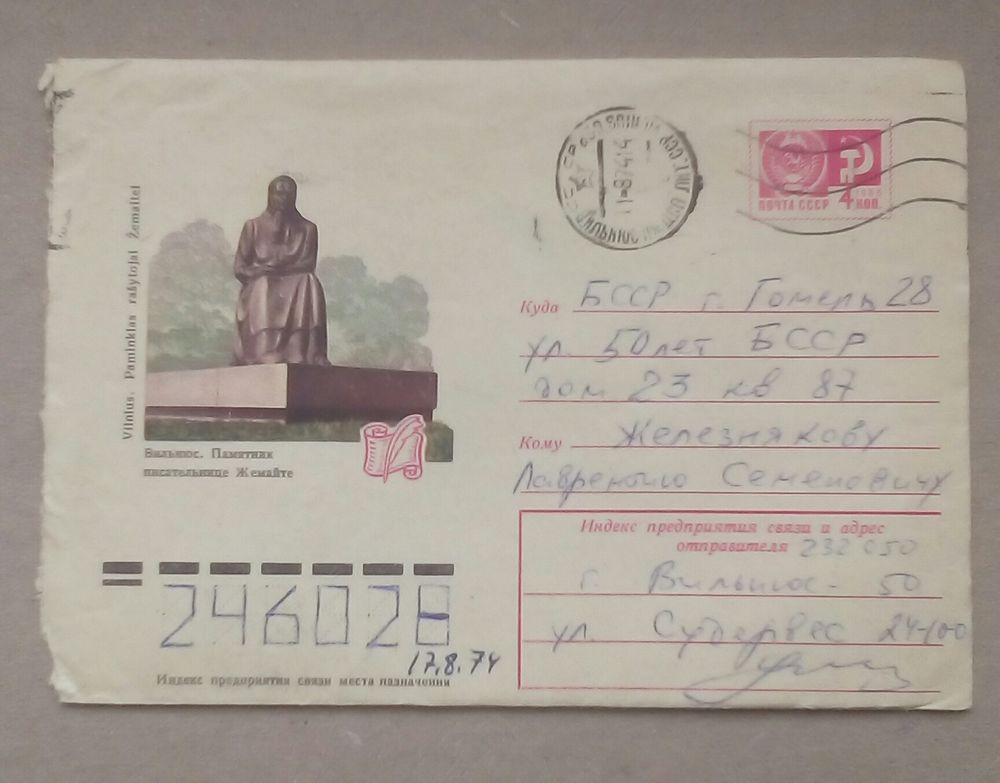 Vilnius. Paminklas rašytojai Žemaitei
Вильнюс. Памятник
писательнице Жемайте
ВИЛЬНЮС
ПОЧТА СССР
4 КОП.
Куда БССР г. Гомель 28
ул. 50 лет БССР
дом 23 кв 87
Кому Железнякову
Лаврентию Семеновичу
Индекс предприятия связи и адрес
отправителя 232050
г. Вильнюс - 50
ул. Судервес 24-100
246028
17.8.74
Индекс предприятия связи места назначения